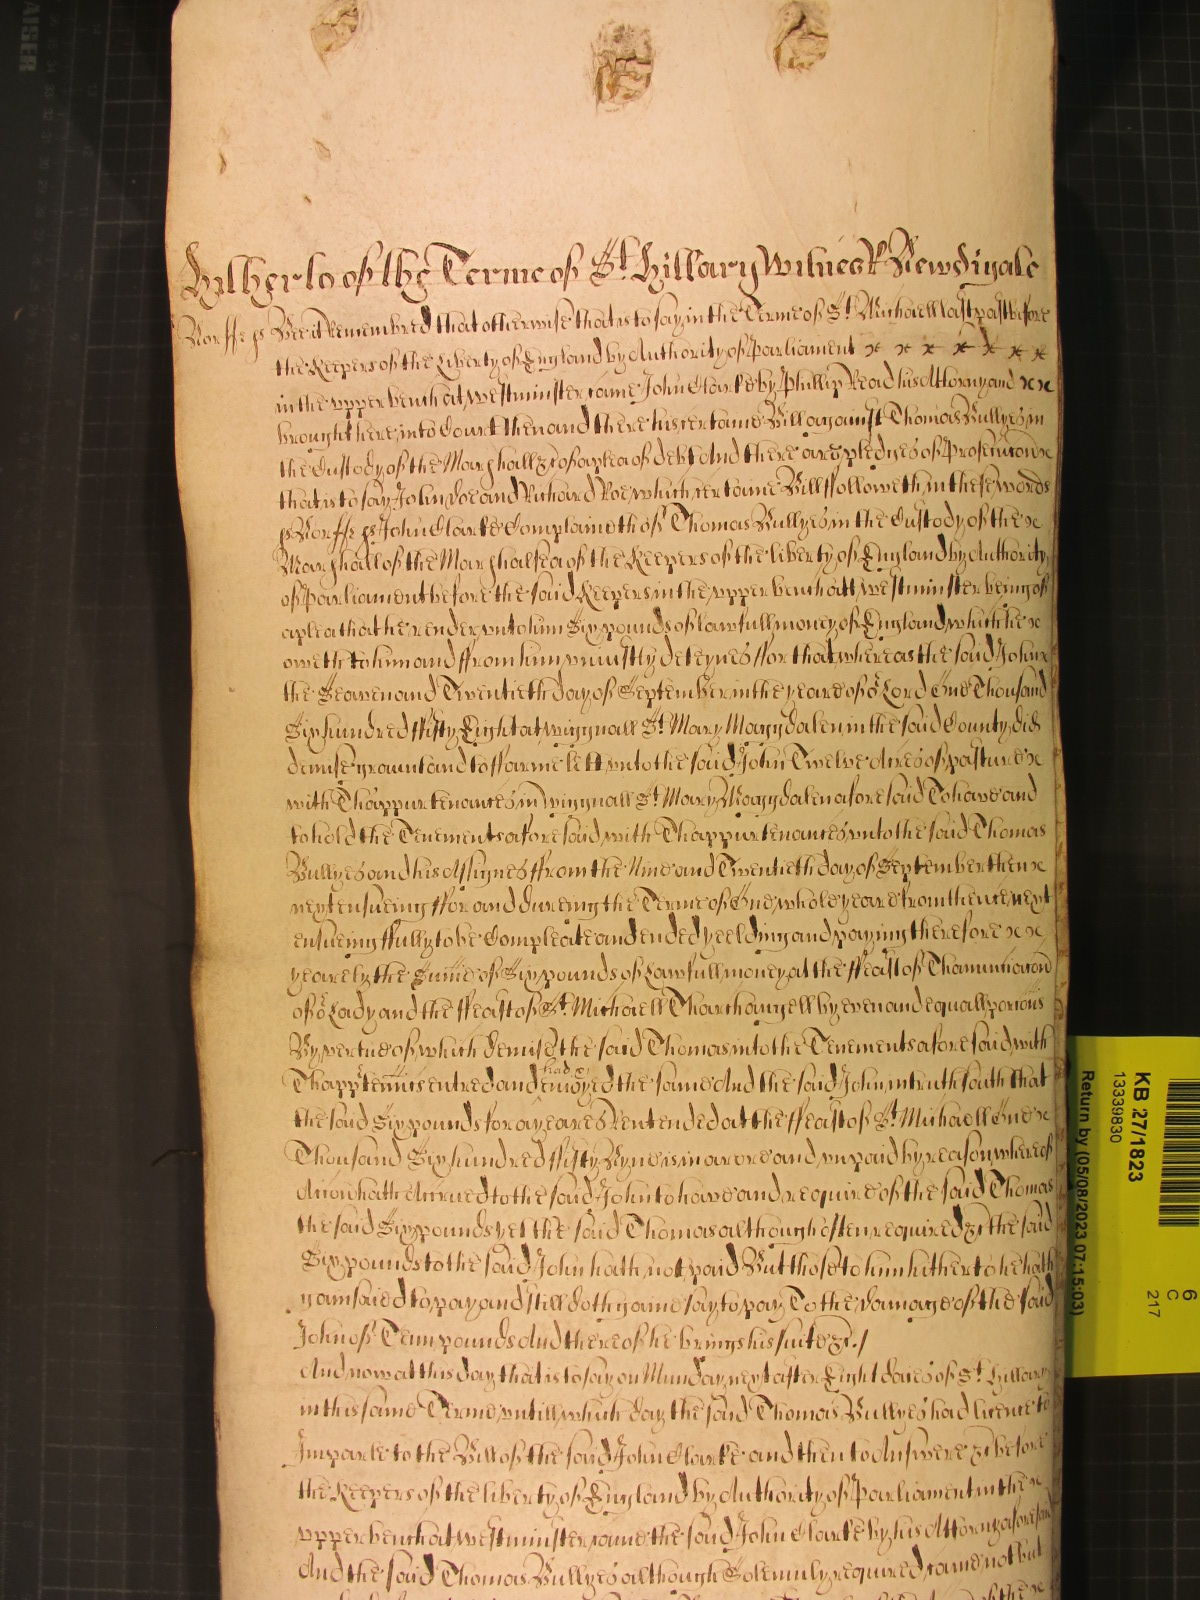 Hitherto of the Terme of St. Hillary Witnes R Newdigate
Norff ss Bee it Remembred that otherwise that is to say in the Terme of St. Michaell last past before
the Keepers of the Liberty of England by Authority of Parliament x x x x x x x
in the vpper bench at Westminster came John Clarke by Phillip Read his Attorny and x x
brought here into Court then and there his certaine Bill against Thomas Bullyes in
the Custody of the Marshall &c of a plea of debt And there are pledges of Prosecution x
that is to say John Doe and Richard Roe which certaine Bill followeth in these words
ss Norff ss John Clarke Complaineth of Thomas Bullyes in the Custody of the x
Marshall of the Marshalsea of the Keepers of the liberty of England by Authority
of Parliament before the said Keepers in the vpper bench att Westminster being of
a plea that he render vnto him Six pounds of lawfull money of England which he x
oweth to him and ffrom him vniustly deteynes ffor that whereas the said John x
the Seaven and Twentieth day of September in the yeare of or Lord One Thousand
Six hundred ffifty Eight at Wiggnall St. Mary Maggdalen in the said County did
demise graunt and to ffarme lett vnto the said John Twelve Acres of pasture x
with Thappurtenances in Wiggnall St. Mary Maggdalen aforesaid To have and
to hold the Tenements aforesaid with Thappurtenances vnto the said Thomas
Bullyes and his Assignes ffrom the Nine and Twentieth day of September then x
next ensueing ffor and dureing the Terme of One whole yeare from thence next
ensueing ffully to be Compleate and ended yeelding and paying therefore x x
yearely the Summe of Six pounds of Lawfull money at the ffeast of Thanunciacon
of or Lady and the ffeast of St. Michaell Tharchangell by even and equall porcions
By vertue of which demise the said Thomas into the Tenements aforesaid with
Thapptennces entred and had enioyed the same And the said John in truth saith that
the said Six pounds for a yeares Rent ended at the ffeast of St. Michaell One x
Thousand Six hundred ffifty Nyne is in arere and vnpaid by reason whereof
Accon hath Accrued to the said John to have and require of the said Thomas
the said Six pounds yet the said Thomas although often required &c the said
Six pounds to the said John hath not paid But those to him hitherto he hath
gainsaied to pay and still doth gainesay to pay To the damage of the said
John of Tenn pounds And thereof he brings his suite &c./
And now at this day that is to say on Munday next after Eight daies of St. Hillary
in this same Terme vntill which day the said Thomas Bullyes had licence to
Imparle to the Bill of the said John Clarke and then to Answere &c before
the Keepers of the liberty of England by Authority of Parliament in the x
vpper bench at Westminster came the said John Clarke by his Attorny aforesaid
And the said Thomas Bullyes although Solemnly required came not but
KB 27/1823
13339830
Return by (05/08/2023 07:15:03)
6
C
217